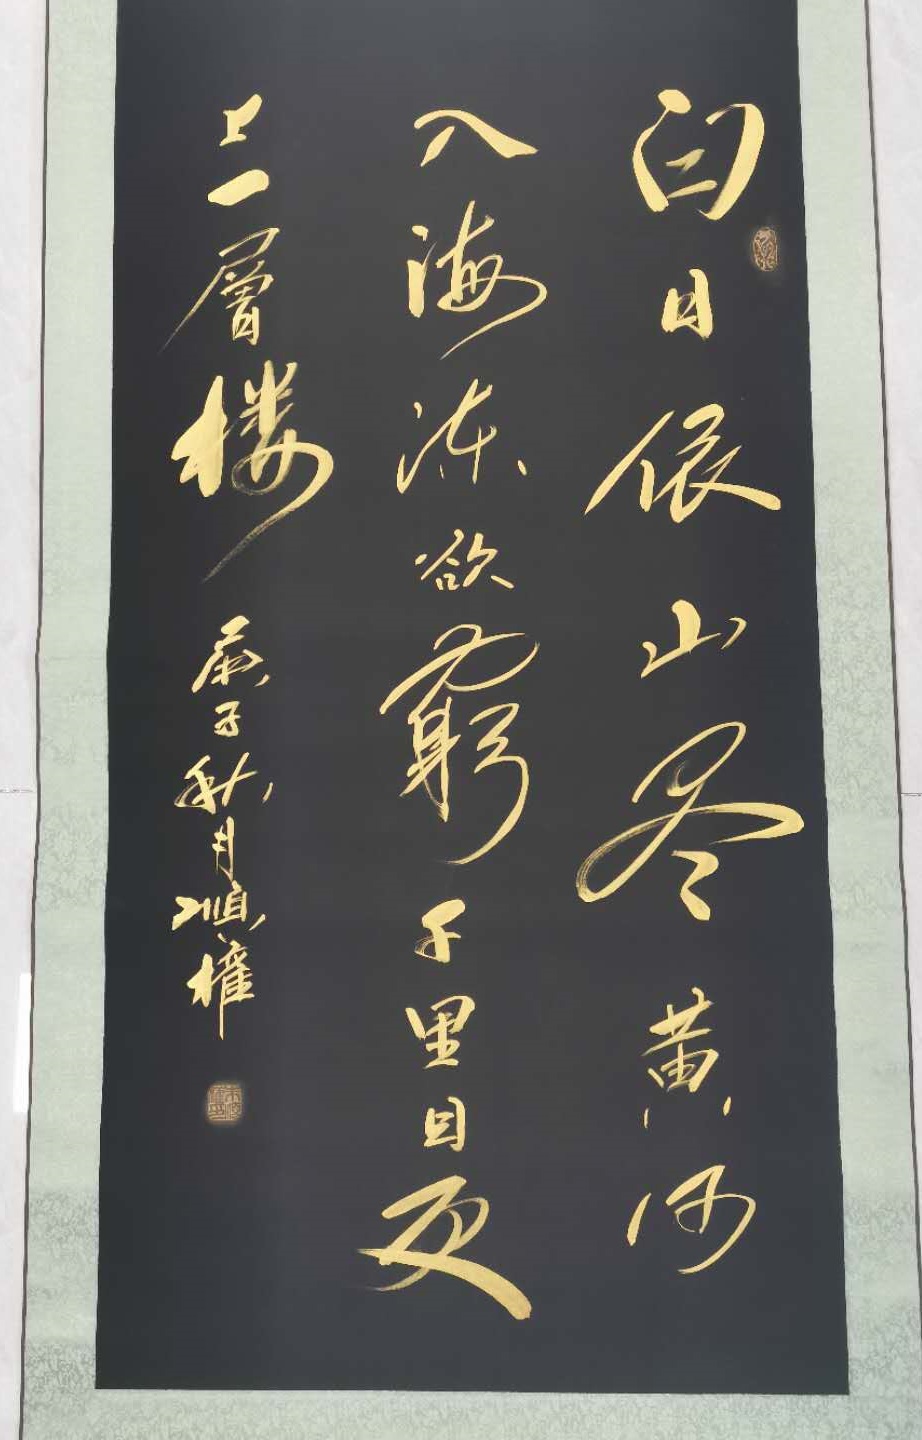 白日依山尽黄河
入海流欲窮千里目更
上一層楼
庚子秋月順權